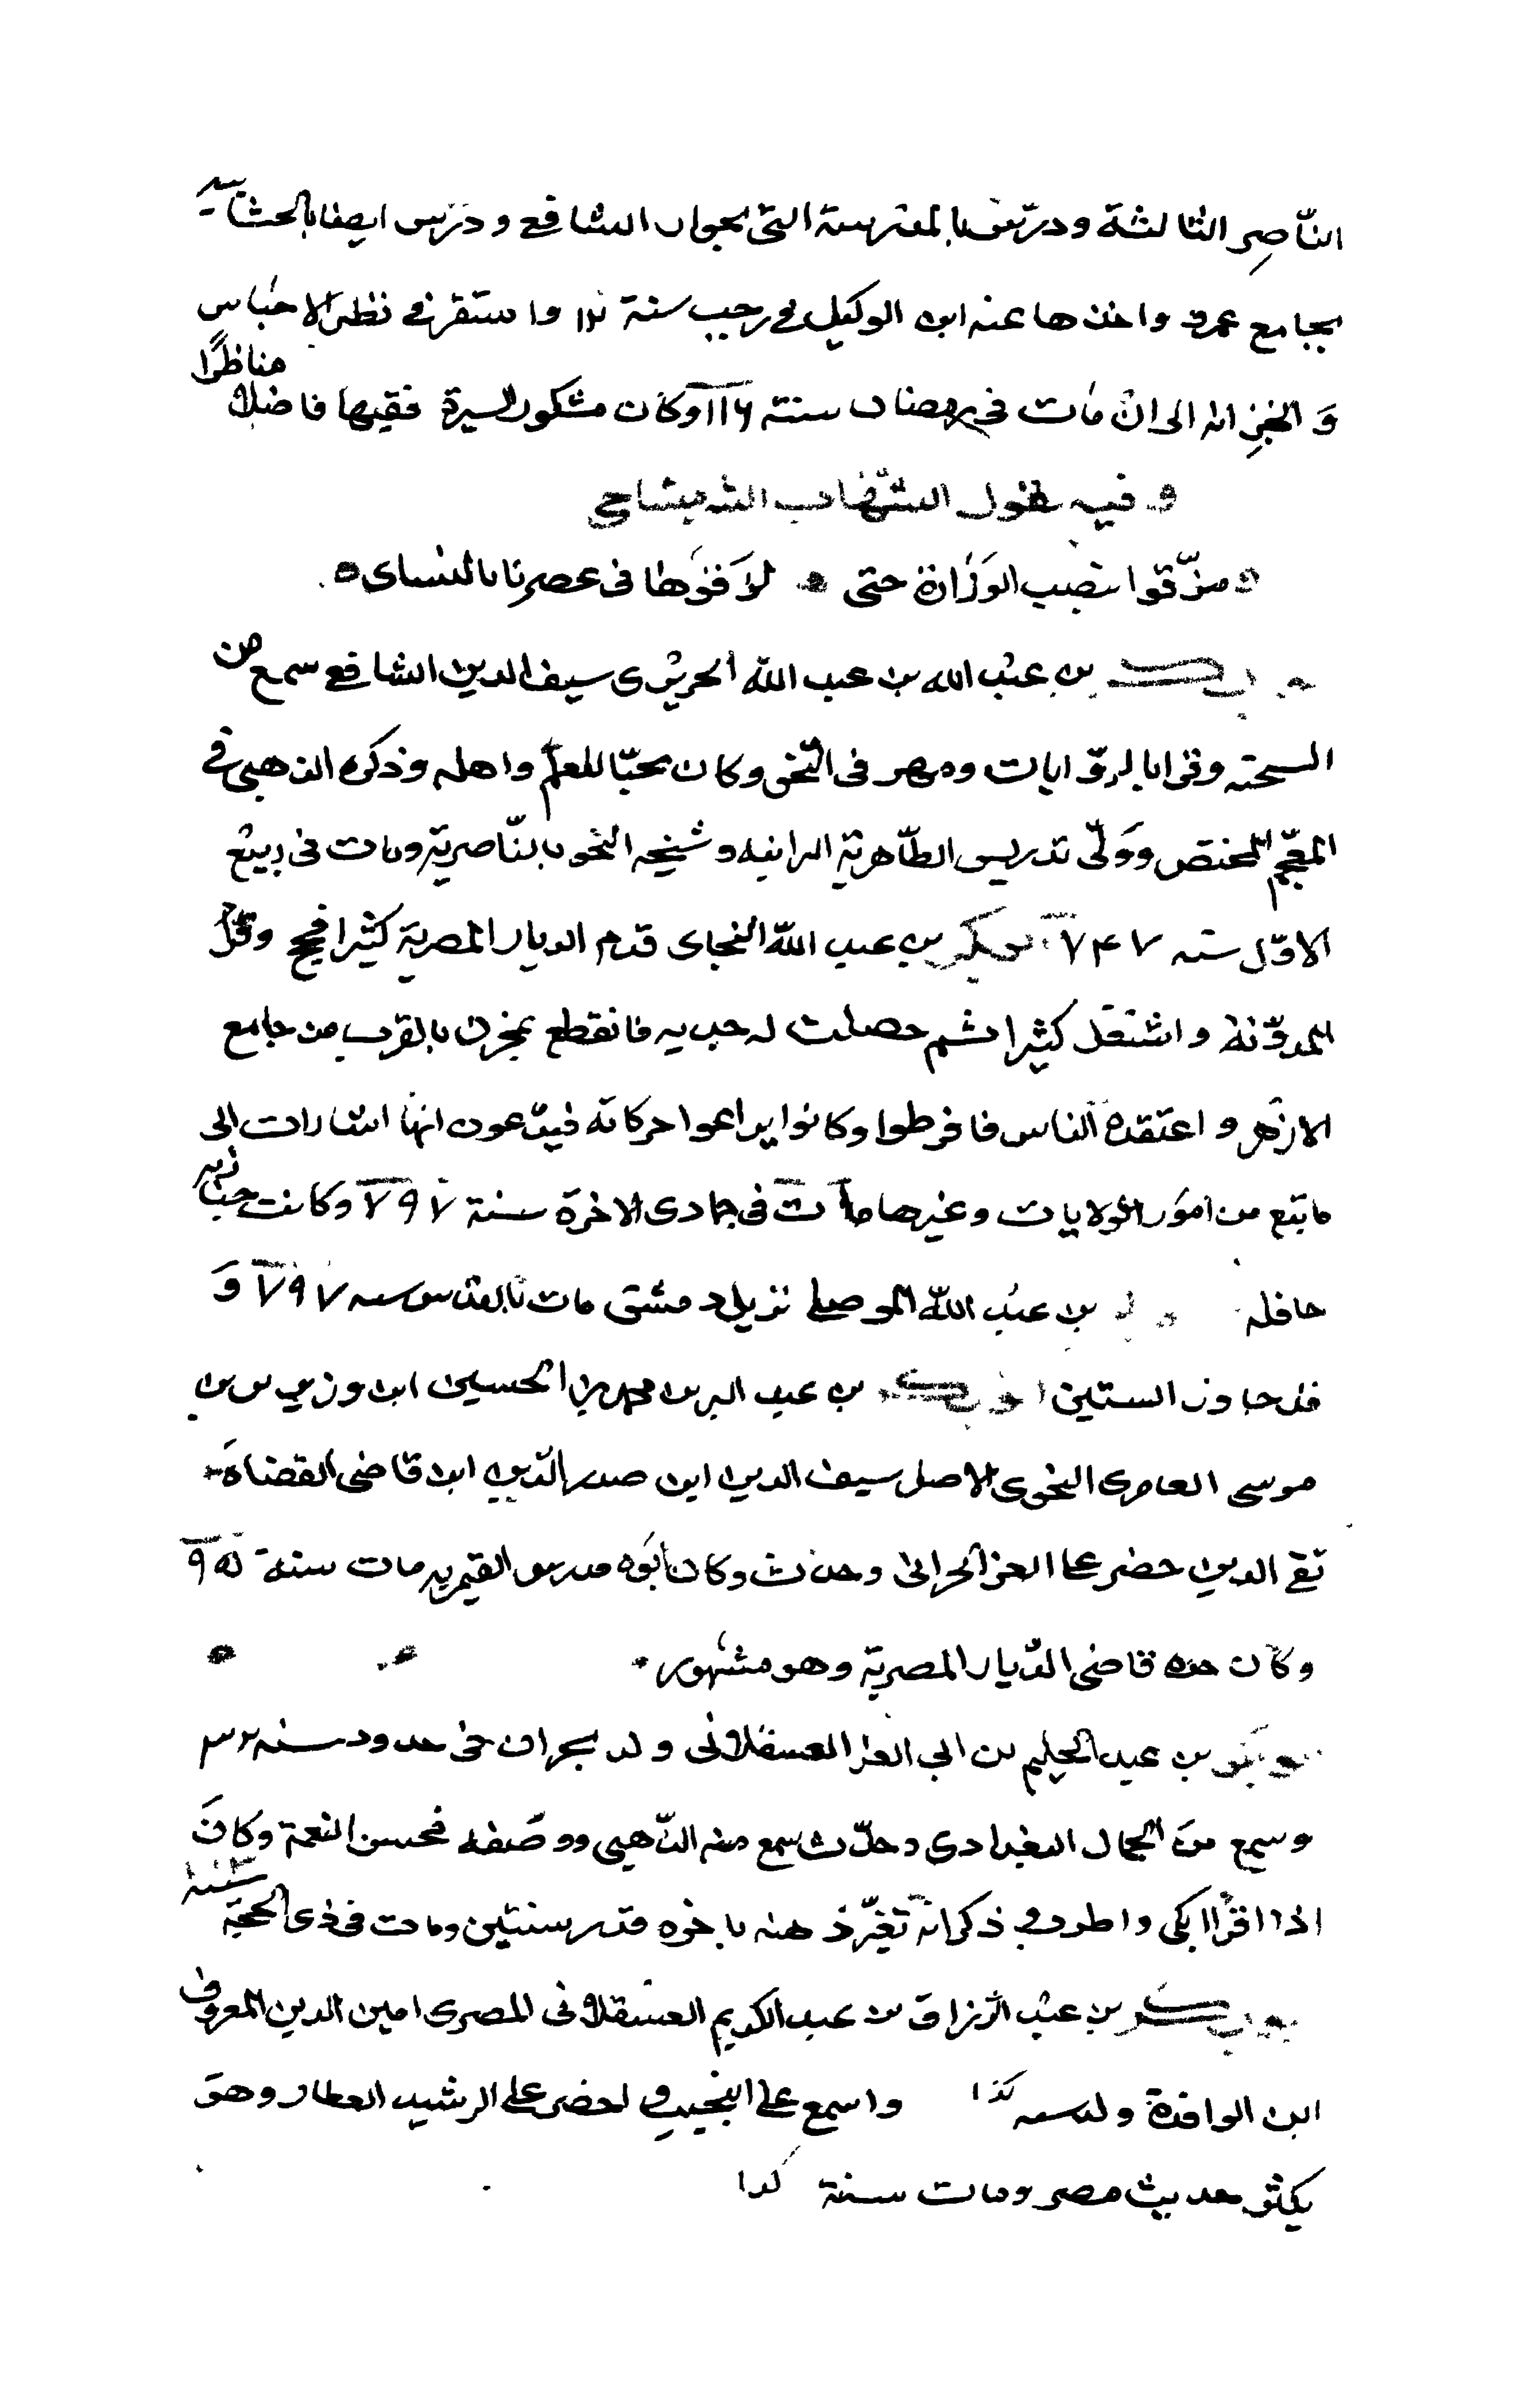 النّاصر الثالثة ودرّس بالمدرسة التى بجوار الشافعى ودرّس ايضا بالخشابية
بجامع عمرو واخذها عنه ابن الوكيل فى رجب سنة واستقر فى نظر الاحباس
وَ الخزانه الى ان مات فى رمضان سنة وكان مشكور السيرة فقيها فاضلا مناظرًا
وفيه يقول الشهاب
مزّقوا منصب الوزارة حتى لازقوها فى عصرنا بالنساى
بن عبد الله بن عبد الله الحريرى سيف الدين الشافعى سمع من
وقرا بالروّايات ومهر فى النحو وكان محبّا للعلم واهله وذكره الذهبى فى
المعجم المختص ووَلّى تدريس الظّاهرية البرانيه ومشيخه النحو بالنّاصرية ومات فى ربيع
الاوّل سنه ٧٤٧ ابو بكر بن عبد اللّه البجاى قدم الديار المصرية كثيرا فحج وقرا
المدوّنة واشتغل كثيرا ثم حصلت له جدبه فانقطع بمخزن بالقرب من جامع
الازهر واعتقده الناس فافرطوا وكانوا يراعوا حركاته فيدّعون انها اشارات الى
ما يقع من امور الولايات وغيرها مات فى جمادى الاخرة سنة ٧٩٧ وكانت جنازته
حافله بن عبد اللّه الموصلى نزيل دمشق مات بالقدس سنه ٧٩٧ وَ
قد جاوز الستين ابو بكر بن عبد البر بن محمد بن الحسين ابن رزين بن
موسى العامرى الاصل سيف الدين ابن صدر الدّين ابن قاضى القضاة
تقى الدين حضر على العز الحرانى وحدث وكان ابوه مدرس القيمريه مات سنة
وكان جده قاضى الدّيار المصرية وهو مشهور
ابو بكر بن عبد الحليم بن ابى العز العسقلانى ولد بحران فى حدود سنه
وسمع من الجمال البغدادى وحدّث سمع منه الذّهبى ووصفه بحسن النغمة وكان
اذا اقرا ابكى واطرب ذكر انه تغيّر ذهنه باخره قدر سنتين ومات فى ذى الحجة سنة
ابو بكر بن عبد الرّزاق بن عبد الكريم العسقلانى المصرى امين الدين المعروف
ابن الواقدة ولد سنه كذا واسمع على النجيب واحضر على الرشيد العطار وهو
يكثر حديث مصر ومات سنة كذا